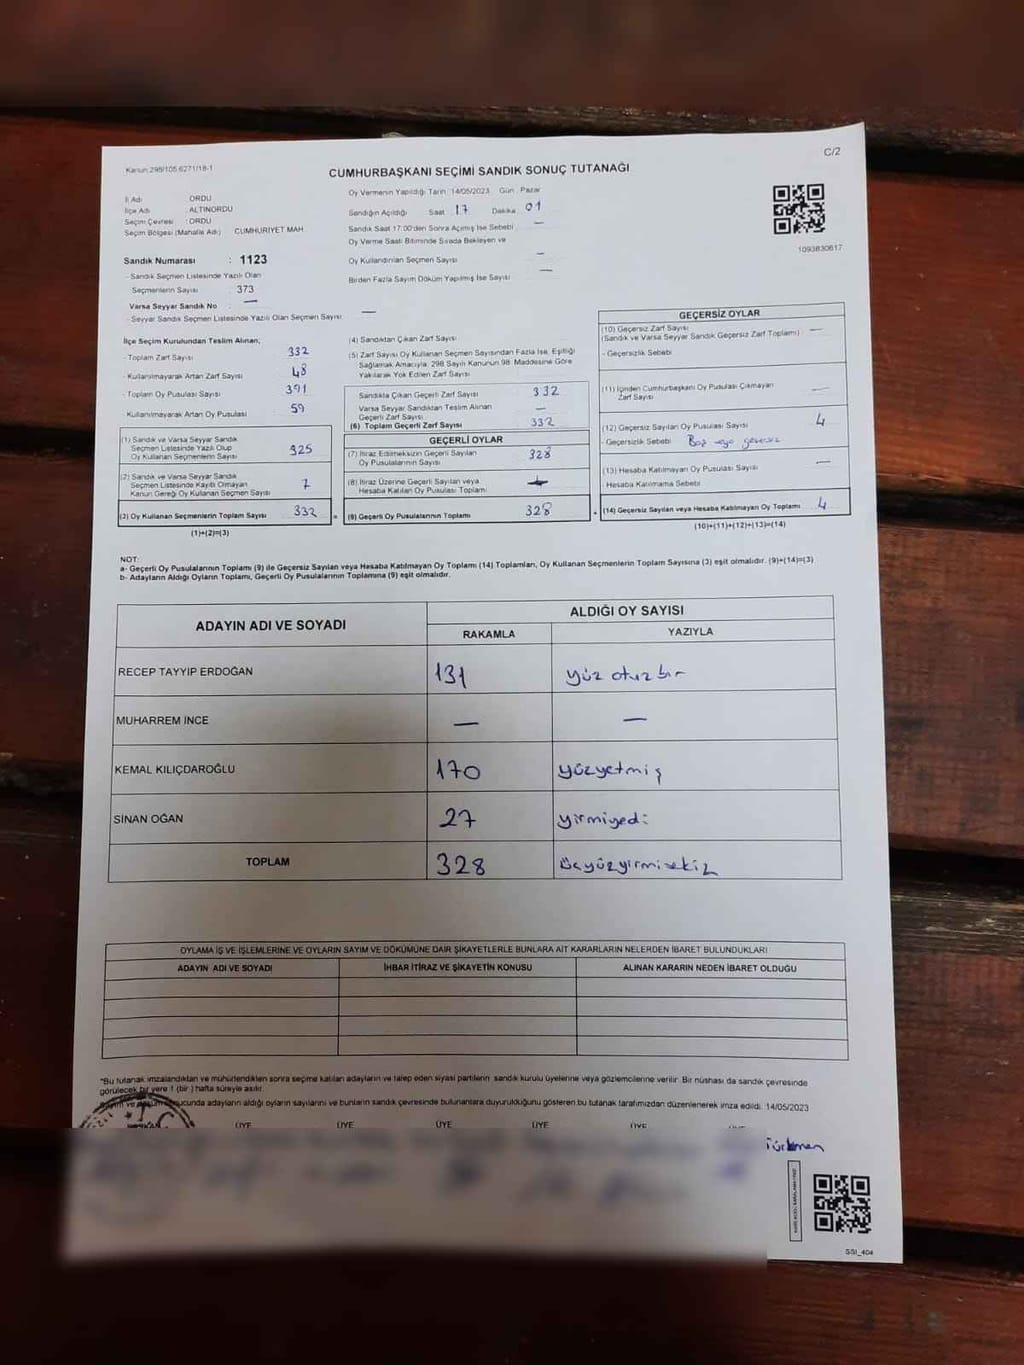 Kanun:298/105.6271/18-1
C/2
CUMHURBAŞKANI SEÇİMİ SANDIK SONUÇ TUTANAĞI
İl Adı ORDU
İlçe Adı : ALTINORDU
Seçim Çevresi : ORDU
Seçim Bölgesi (Mahalle Adı) CUMHURİYET MAH.
Sandık Numarası : 1123
- Sandık Seçmen Listesinde Yazılı Olan
Seçmenlerin Sayısı : 373
Varsa Seyyar Sandık No : —
- Seyyar Sandık Seçmen Listesinde Yazılı Olan Seçmen Sayısı: —
Oy Vermenin Yapıldığı Tarih :14/05/2023 Gün : Pazar
Sandığın Açıldığı Saat 17 Dakika 01
Sandık Saat 17:00'den Sonra Açılmış İse Sebebi —
Oy Verme Saati Bitiminde Sırada Bekleyen ve
Oy Kullandırılan Seçmen Sayısı —
Birden Fazla Sayım Döküm Yapılmış İse Sayısı —
1093830617
İlçe Seçim Kurulundan Teslim Alınan;
- Toplam Zarf Sayısı : 332
- Kullanılmayarak Artan Zarf Sayısı : 48
- Toplam Oy Pusulası Sayısı : 391
Kullanılmayarak Artan Oy Pusulası 59
(1) Sandık ve Varsa Seyyar Sandık
Seçmen Listesinde Yazılı Olup
Oy Kullanan Seçmenlerin Sayısı 325
(2) Sandık ve Varsa Seyyar Sandık
Seçmen Listesinde Kayıtlı Olmayan
Kanun Gereği Oy Kullanan Seçmen Sayısı 7
(3) Oy Kullanan Seçmenlerin Toplam Sayısı 332
(1)+(2)=(3)
(4) Sandıktan Çıkan Zarf Sayısı
(5) Zarf Sayısı Oy Kullanan Seçmen Sayısından Fazla İse, Eşitliği
Sağlamak Amacıyla; 298 Sayılı Kanunun 98. Maddesine Göre
Yakılarak Yok Edilen Zarf Sayısı
Sandıkta Çıkan Geçerli Zarf Sayısı 332
Varsa Seyyar Sandıktan Teslim Alınan
Geçerli Zarf Sayısı —
(6) Toplam Geçerli Zarf Sayısı 332
GEÇERLİ OYLAR
(7) İtiraz Edilmeksizin Geçerli Sayılan
Oy Pusulalarının Sayısı 328
(8) İtiraz Üzerine Geçerli Sayılan veya
Hesaba Katılan Oy Pusulası Toplamı
(9) Geçerli Oy Pusulalarının Toplamı 328
GEÇERSİZ OYLAR
(10) Geçersiz Zarf Sayısı —
(Sandık ve Varsa Seyyar Sandık Geçersiz Zarf Toplamı)
- Geçersizlik Sebebi
(11) İçinden Cumhurbaşkanı Oy Pusulası Çıkmayan
Zarf Sayısı —
(12) Geçersiz Sayılan Oy Pusulası Sayısı 4
- Geçersizlik Sebebi Boş veya geçersiz
(13) Hesaba Katılmayan Oy Pusulası Sayısı —
- Hesaba Katılmama Sebebi
(14) Geçersiz Sayılan veya Hesaba Katılmayan Oy Toplamı 4
(10)+(11)+(12)+(13)=(14)
NOT:
a- Geçerli Oy Pusulalarının Toplamı (9) ile Geçersiz Sayılan veya Hesaba Katılmayan Oy Toplamı (14) Toplamları, Oy Kullanan Seçmenlerin Toplam Sayısına (3) eşit olmalıdır. (9)+(14)=(3)
b- Adayların Aldığı Oyların Toplamı, Geçerli Oy Pusulalarının Toplamına (9) eşit olmalıdır.
ADAYIN ADI VE SOYADI
ALDIĞI OY SAYISI
RAKAMLA YAZIYLA
RECEP TAYYİP ERDOĞAN 131 yüz otuz bir
MUHARREM İNCE — —
KEMAL KILIÇDAROĞLU 170 yüzyetmiş
SİNAN OĞAN 27 yirmiyedi
TOPLAM 328 üçyüzyirmisekiz
OYLAMA İŞ VE İŞLEMLERİNE VE OYLARIN SAYIM VE DÖKÜMÜNE DAİR ŞİKAYETLERLE BUNLARA AİT KARARLARIN NELERDEN İBARET BULUNDUKLARI
ADAYIN ADI VE SOYADI İHBAR İTİRAZ VE ŞİKAYETİN KONUSU ALINAN KARARIN NEDEN İBARET OLDUĞU
*Bu tutanak imzalandıktan ve mühürlendikten sonra seçime katılan adayların ve talep eden siyasi partilerin sandık kurulu üyelerine veya gözlemcilerine verilir. Bir nüshası da sandık çevresinde
görülecek bir yere 1 (bir ) hafta süreyle asılır.
sucunda adayların aldığı oyların sayılarını ve bunların sandık çevresinde bulunanlara duyurulduğunu gösteren bu tutanak tarafımızdan düzenlenerek imza edildi. 14/05/2023
ÜYE ÜYE ÜYE ÜYE ÜYE
Türkmen
SSI_404